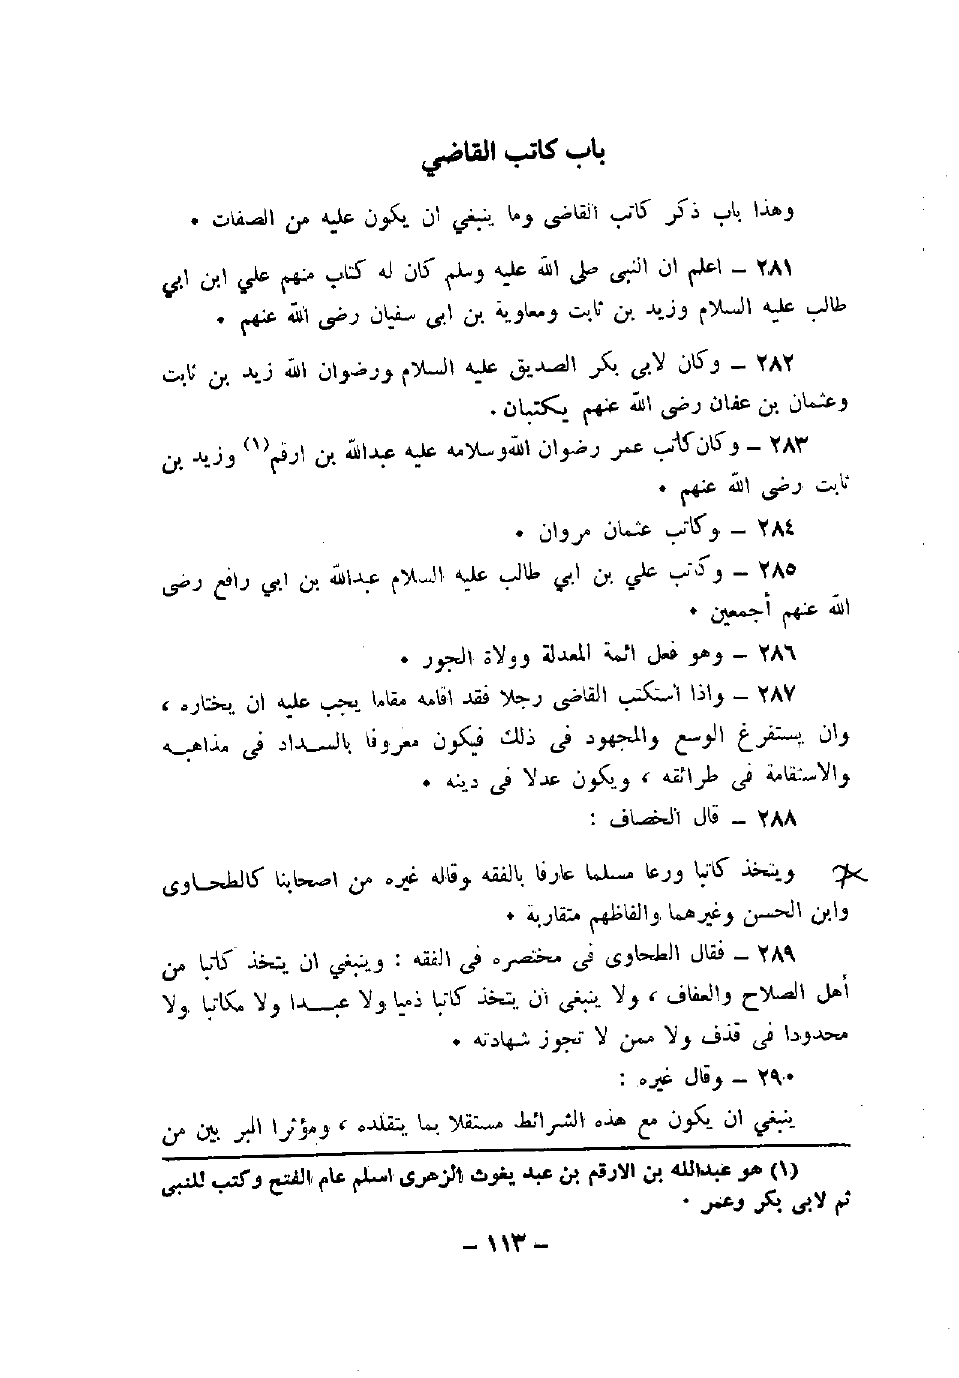 باب كاتب القاضي
وهذا باب ذكر كاتب القاضى وما ينبغي ان يكون عليه من الصفات ٠
٢٨١ ـ اعلم ان النبى صلى الله عليه وسلم كان له كتاب منهم علي ابن ابي
طالب عليه السلام وزيد بن ثابت ومعاوية بن ابى سفيان رضى الله عنهم ٠
٢٨٢ ـ وكان لابي بكر الصديق عليه السلام ورضوان الله زيد بن ثابت
وعثمان بن عفان رضى الله عنهم يكتبان ٠
٢٨٣ ـ وكان كاتب عمر رضوان الله وسلامه عليه عبدالله بن ارقم(١) وزيد بن
ثابت رضى الله عنهم ٠
٢٨٤ ـ وكاتب عثمان مروان ٠
٢٨٥ ـ وكتب علي بن ابي طالب عليه السلام عبدالله بن ابي رافع رضى
الله عنهم أجمعين ٠
٢٨٦ ـ وهو فعل ائمة المعدلة وولاة الجور ٠
٢٨٧ ـ واذا استكتب القاضى رجلا فقد اقامه مقاما يجب عليه ان يختاره ،
وان يستفرغ الوسع والمجهود فى ذلك فيكون معروفا بالسداد فى مذاهبه
والاستقامة فى طرائقه ، ويكون عدلا فى دينه ٠
٢٨٨ ـ قال الخصاف :
ويتخذ كاتبا ورعا مسلما عارفا بالفقه وقاله غيره من اصحابنا كالطحاوى
وابن الحسن وغيرهما والفاظهم متقاربة ٠
٢٨٩ ـ فقال الطحاوى فى مختصره فى الفقه : وينبغي ان يتخذ كاتبا من
أهل الصلاح والعفاف ، ولا ينبغي ان يتخذ كاتبا ذميا ولا عبدا ولا مكاتبا ولا
محدودا فى قذف ولا ممن لا تجوز شهادته ٠
٢٩٠ ـ وقال غيره :
ينبغي ان يكون مع هذه الشرائط مستقلا بما يتقلده ، ومؤثرا البر بين من
(١) هو عبدالله بن الارقم بن عبد يغوث الزهرى اسلم عام الفتح وكتب للنبى
ثم لابى بكر وعمر ٠
ـ ١١٣ ـ